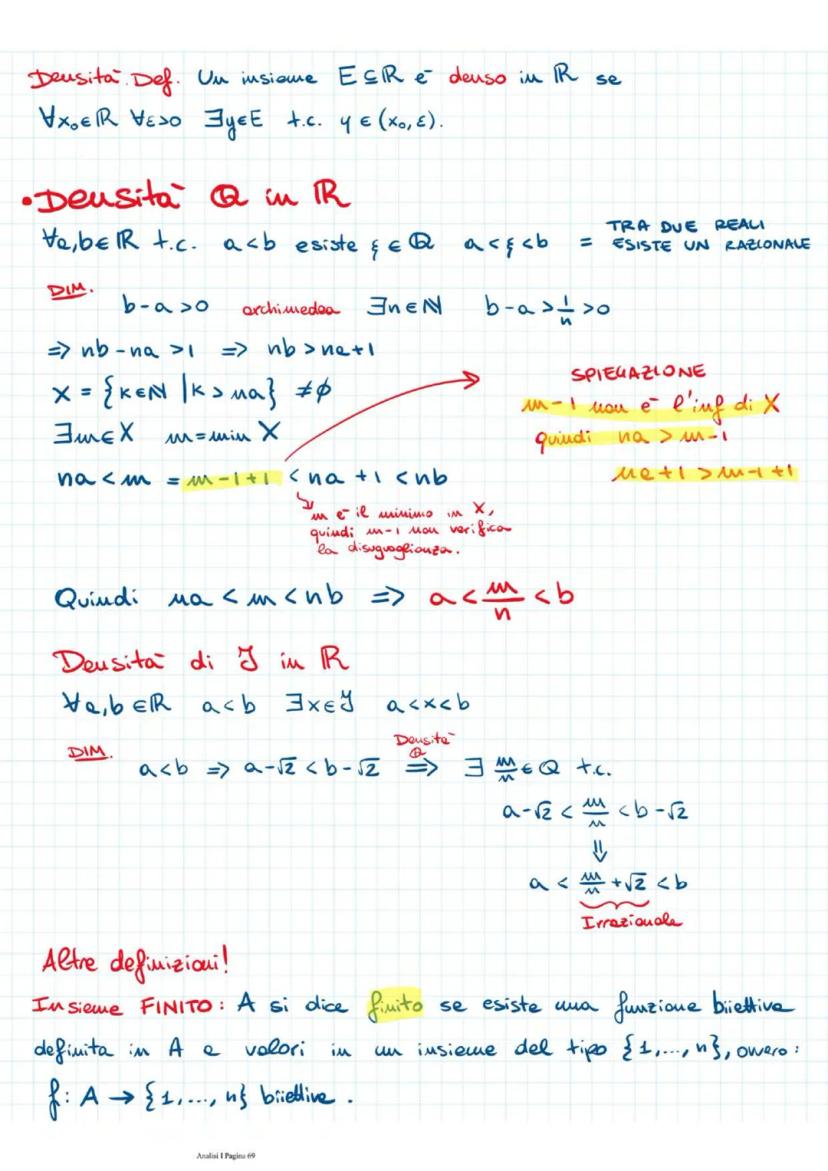 Densità Def. Un insieme E⊆ℝ è denso in ℝ se
∀x₀∈ℝ ∀ε>0 ∃y∈E t.c. y∈(x₀,ε).
•Densità ℚ in ℝ
∀a,b∈ℝ t.c. a<b esiste ξ∈ℚ a<ξ<b = TRA DUE REALI
ESISTE UN RAZIONALE
DIM.
b-a>0 archimedea ∃n∈ℕ b-a>1/n>0
⇒ nb-na>1 ⇒ nb>na+1
X = {k∈ℕ | k>na} ≠∅
∃m∈X m=min X
na<m = m-1+1 <na+1 <nb
m è il minimo in X,
quindi m-1 non verifica
la disuguaglianza.
SPIEGAZIONE
m-1 non è l'inf di X
quindi na > m-1
na+1 > m-1+1
Quindi na<m<nb ⇒ a<m/n<b
Densità di J in ℝ
∀a,b∈ℝ a<b ∃x∈J a<x<b
DIM.
a<b ⇒ a-√2<b-√2 Densità ℚ ⇒ ∃ m/n∈ℚ t.c.
a-√2 < m/n < b-√2
⇓
a < m/n+√2 < b
Irrazionale
Altre definizioni!
Insieme FINITO: A si dice finito se esiste una funzione biiettiva
definita in A a valori in un insieme del tipo {1,..., n}, ovvero:
f: A → {1,..., n} biiettiva.
Analisi I Pagina 69